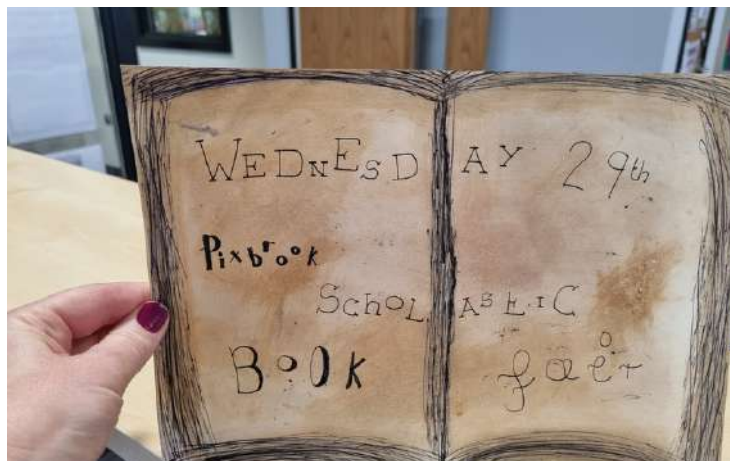 WEDNESDAY 29th
Pixbrook
SCHOLASTIC
BOOK faer